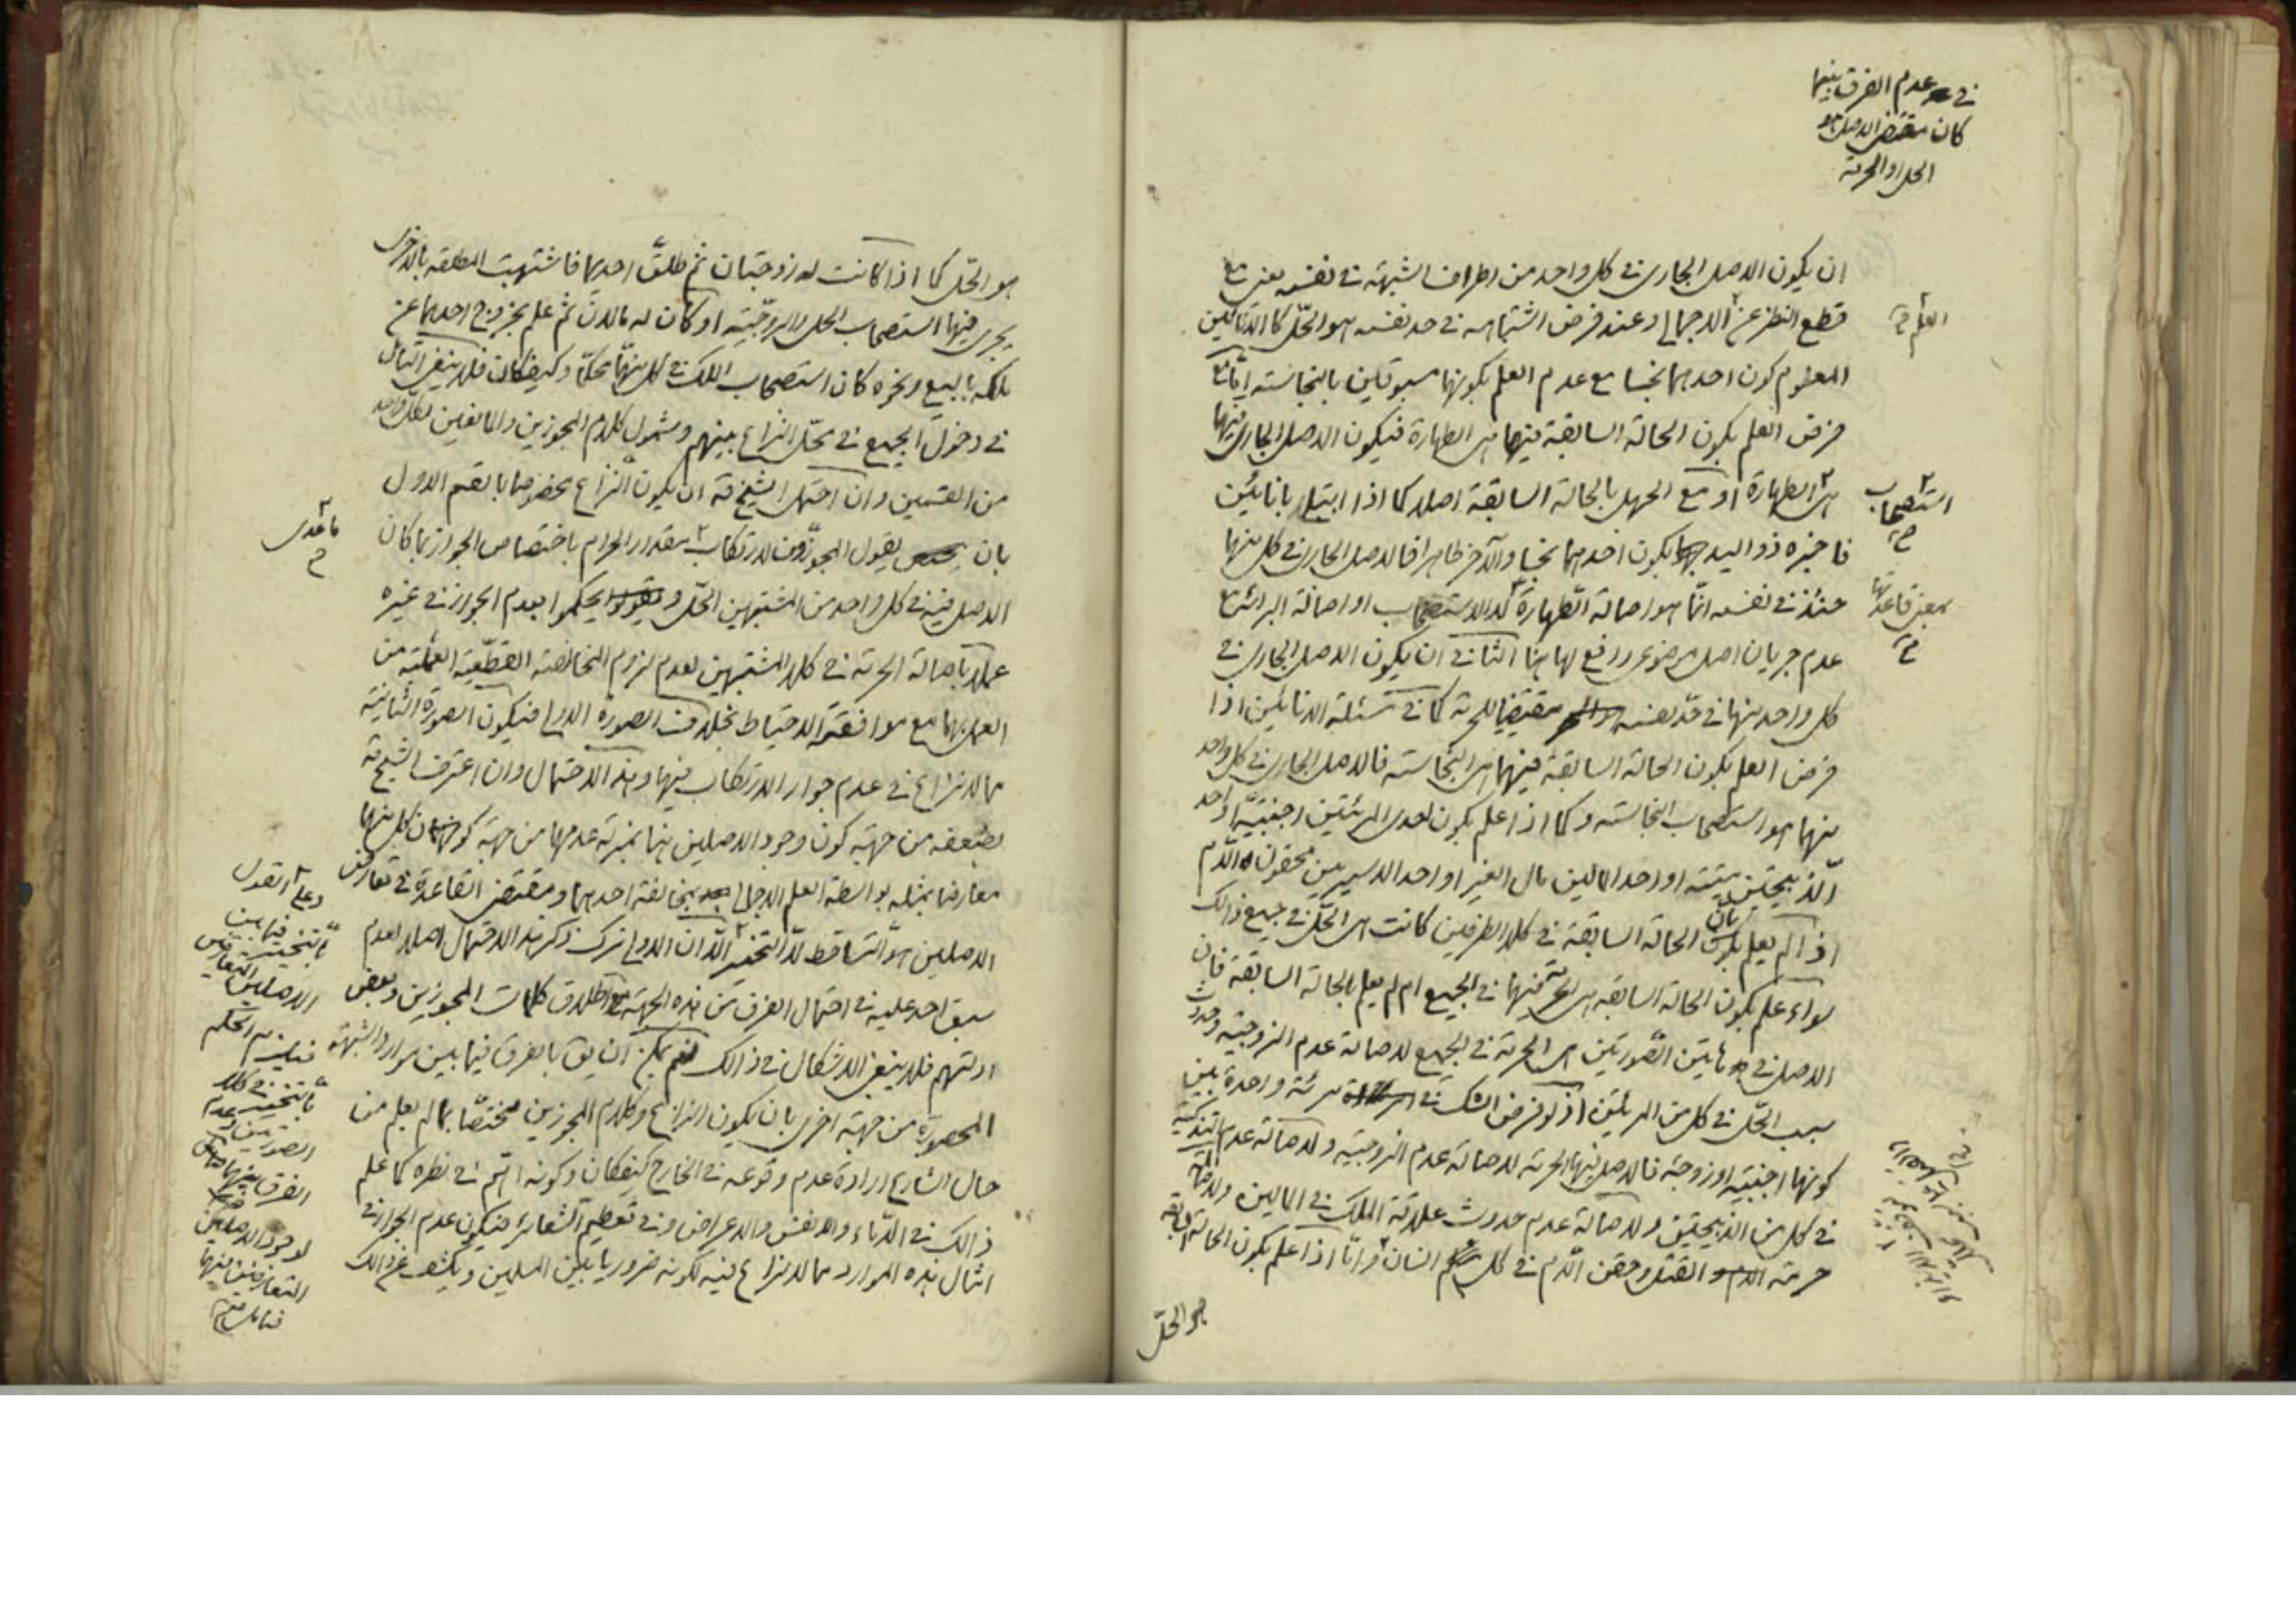 في عدم الفرق بينهما
كان مقتضى الاصل هو
الحل او الحرمة
ان يكون الاصل الجارى فى كل واحد من اطراف الشبهة فى نفسه يعنى مع
قطع النظر عن الاجمالى وعند فرض اشتباهه فى حد نفسه هو الحلّ كالانائين
العلم صح
المعلوم كون احدهما نجسا مع عدم العلم بكونهما مسبوقين بالنجاسة امّا مع
فرض العلم بكون الحالة السابقة فيهما هى الطهارة فيكون الاصل الجارى فيهما
هى الطهارة او مع الجهل بالحالة السابقة اصلا كما اذا ابتلى بانائين
استصحاب صح
فاخبره ذو اليد بكون احدهما نجسا والآخر طاهرا فالاصل الجارى فى كل منهما
حينئذ فى نفسه انّما هو اصالة الطهارة لا الاستصحاب او اصالة البرائة مع
بمعنى قاعدتها صح
عدم جريان اصل موضوعى رافع لها هنا الثانى ان يكون الاصل الجارى فى
كل واحد منهما فى حدّ نفسه مقتضيا للحرمة كما فى مسئلة الانائين اذا
فرض العلم بكون الحالة السابقة فيهما هى النجاسة فالاصل الجارى فى كل واحد
منهما هو استصحاب النجاسة وكما اذا علم بكون احدى المرئتين اجنبيّة او احد
الذبيحتين ميتة او احد المالين مال الغير او احد الاسيرين محقون الدّم
اذا لم يعلم بان الحالة السابقة فى كلا الطرفين كانت هى الحلّ فى جميع ذالك
سواء علم بكون الحالة السابقة هى الحرمة فيهما فى الجميع ام لم يعلم بالحالة السابقة فان
الاصل فى هاتين الصّورتين هى الحرمة فى الجميع لاصالة عدم الزوجية وحدوث
سبب الحلّ فى كل من المرئتين اذ لو فرض الشك فى مرئة واحدة بين
كونها اجنبية او زوجة فالاصل فيها الحرمة لاصالة عدم الزوجية ولاصالة عدم التذكية
فى كل من الذبيحتين ولاصالة عدم حدوث علاقة الملك فى المالين ولاصالة
حرمة القتل وحقن الدّم فى كل انسان وامّا اذا علم بكون الحالة السابقة
هو الحلّ
هو الحلّ كما اذا كانت له زوجتان ثم طلّق احديهما فاشتبهت المطلقة بالاخرى
يجرى فيهما استصحاب الحل والزوجيّة او كان له مالان ثم علم بخروج احدهما عن
ملكه بالبيع ونحوه كان استصحاب الملك فى كل منهما محكّما وكيفكان فلا ينبغى التامل
فى دخول الجميع فى محلّ النزاع بينهم وشمول كلام المجوزين والمانعين لكل واحد
من القسمين وان احتمل الشيخ قه ان يكون النّزاع مخصوصا بالقسم الاول
بان يقول المجوّزون لارتكاب مقدار الحرام باختصاص الجواز بما كان
ما عدى صح
الاصل فيه فى كل واحد من المشتبهين الحلّ ويحكموا بعدم الجواز فى غيره
عملا باصالة الحرمة فى كلا المشتبهين لعدم لزوم المخالفة القطعيّة العمليّة من
العمل بهما مع موافقته الاحتياط بخلاف الصورة الاولى فيكون الصورة الثانية
مما لا نزاع فى عدم جواز الارتكاب فيها وهذا الاحتمال وان اعترف الشيخ قه
بضعفه من جهة كون وجود الاصلين هنا بمنزلة عدمهما من جهة كون كل منهما
معارضا بمثله بواسطة العلم الاجمالى بمخالفة احدهما ومقتضى القاعدة فى تعارض
الاصلين هو التساقط لا التخيير الّا ان الاولى ترك ذكر هذا الاحتمال اصلا لعدم
سبق احد عليه فى احتمال الفرق من هذه الجهة مع اطلاق كلمات المجوزين وبعض
ادلتهم فلا ينبغى الاشكال فى ذالك نعم يمكن ان يق بالفرق فيما بين موارد الشبهة
المحصورة من جهة اخرى بان يكون النزاع وكلام المجوزين مختصّا بما لم يعلم من
حال الشارع ارادة عدم وقوعه فى الخارج كيفكان وكونه اهمّ فى نظره كما علم
ذالك فى الدّماء والانفس والاعراض وفى تعظيم الشعائر فيكون عدم الجواز فى
امثال هذه الموارد مما لا نزاع فيه لكونه ضروريا بين المسلمين ويكشف عن ذالك
وعلى القول
بالتخيير فيما بين
الاصلين المتعارضين
فيلزم الحكم
بالتخيير فى كلا
الصورتين وعدم
الفرق بينهما
لوجود الاصلين
المتعارضين فيهما
فتامل منه